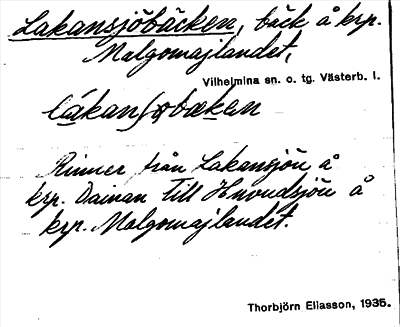 Lakansjöbäcken, bäck å krp.
Malgomajlandet,
Vilhelmina sn. o. tg. Västerb. l.
Rinner från Lakansjön å
krp. Dainan till Hvoudsjön å
krp. Malgomajlandet.
Thorbjörn Eliasson, 1935.